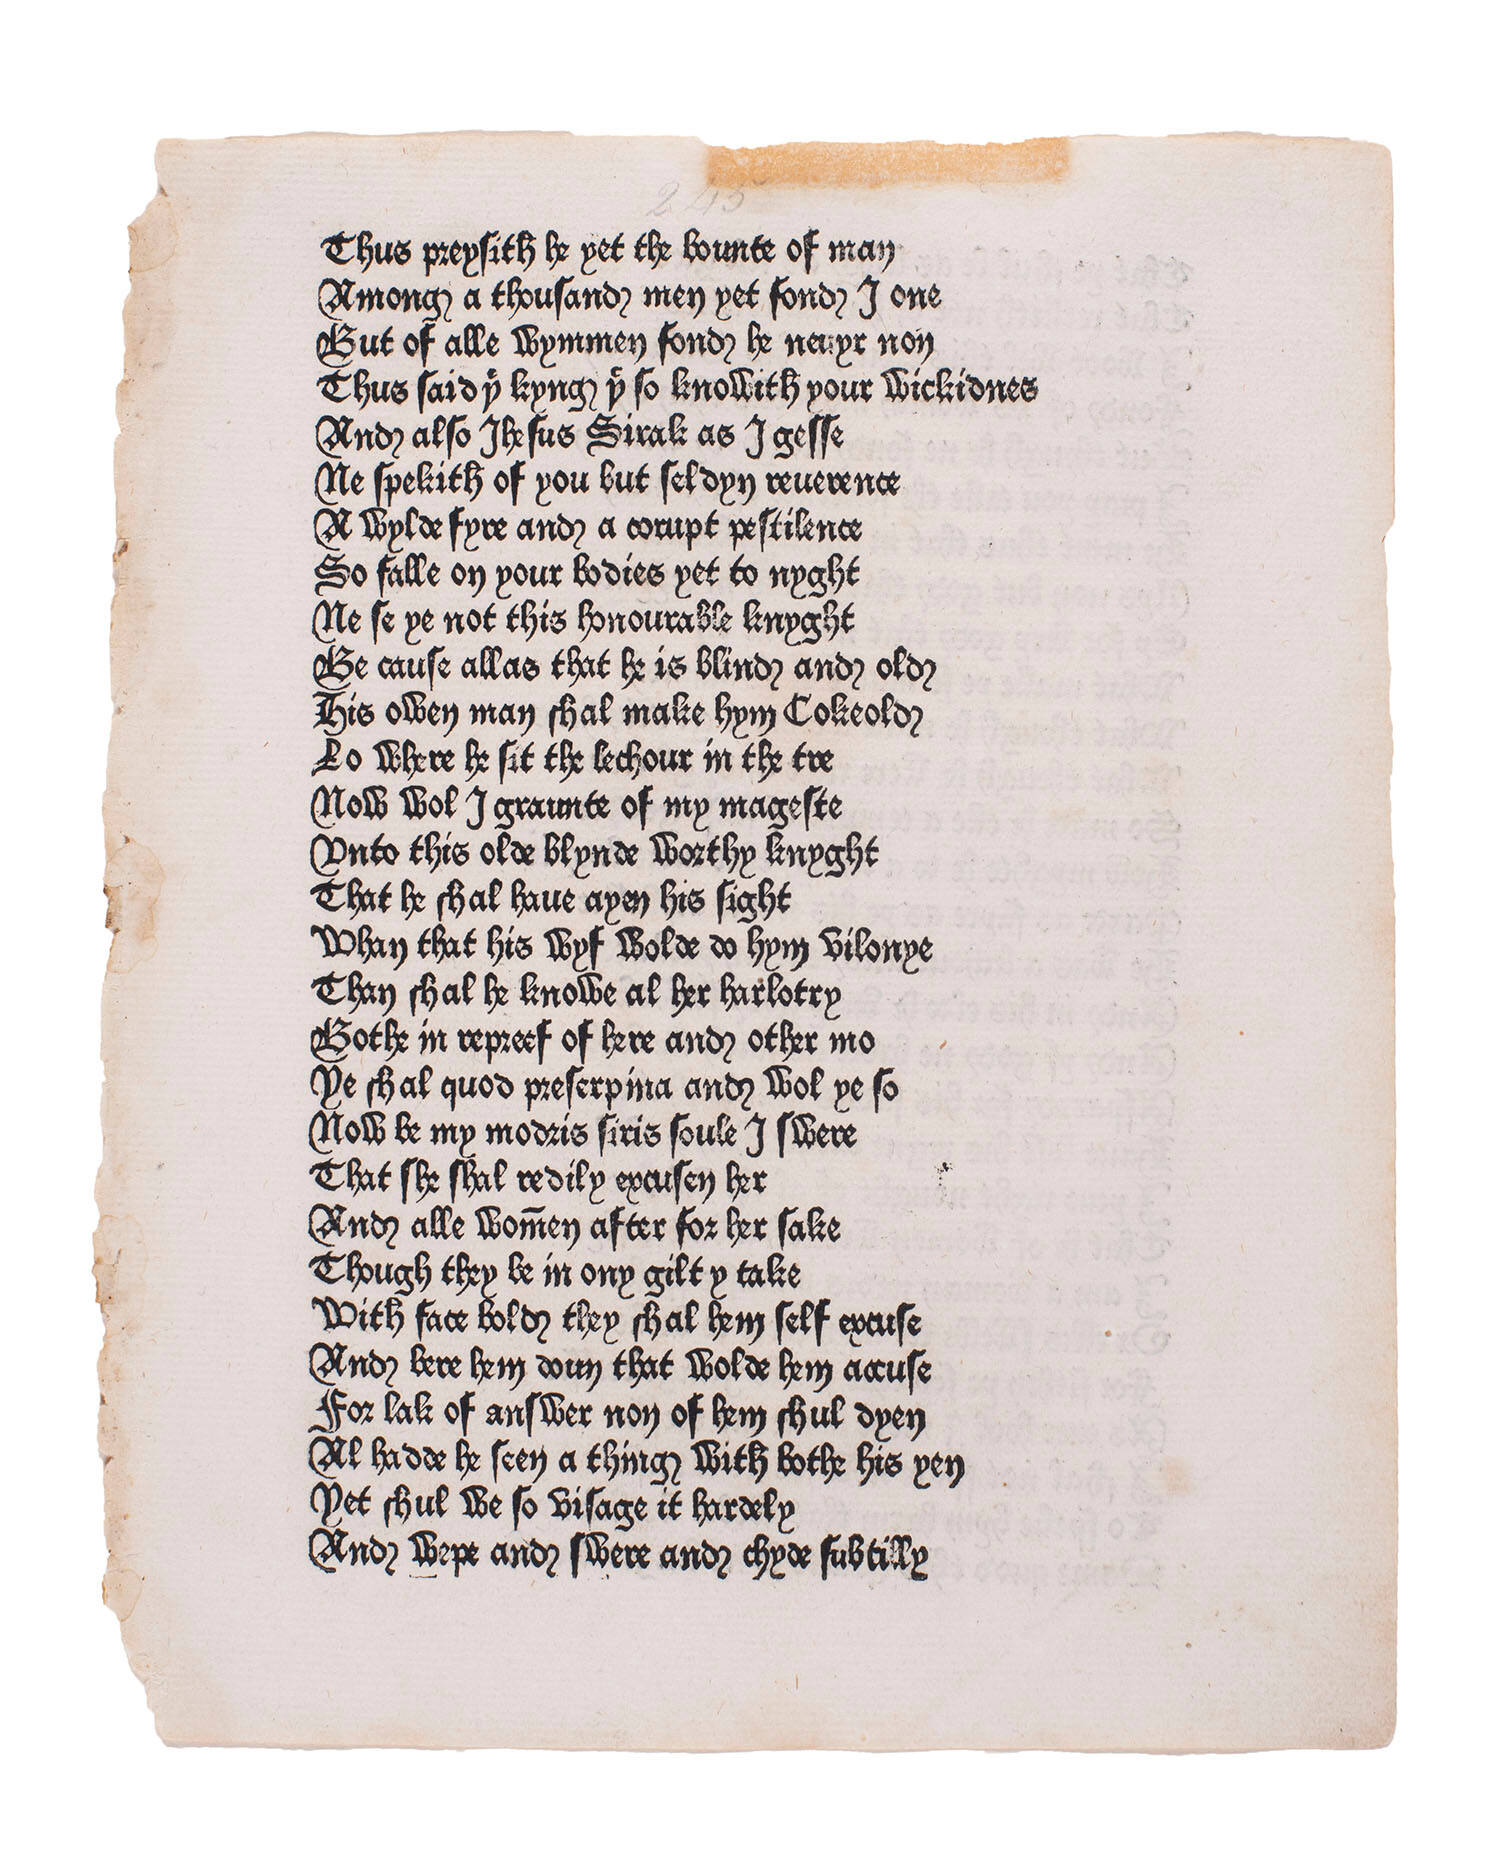 245
Thus preysith he yet the bounte of man
Among a thousand men yet fond I one
But of alle wymmen fond he neuyr non
Thus said yͤ kyng yͭ so knowith your wickidnes
And also Jhesus Sirak as I gesse
Ne spekith of you but seldyn reuerence
A wylde fyre and a corupt pestilence
So falle on your bodies yet to nyght
Ne se ye not this honourable knyght
Be cause allas that he is blind and old
His owen man schal make hym Cokeold
Lo where he sit the lechour in the tre
Now wol I graunte of my mageste
Vnto this olde blynde worthy knyght
That he schal haue ayen his sight
Whan that his wyf wolde do hym vilonye
Than schal he knowe al her harlotry
Bothe in repreef of here and other mo
Ye schal quod preserpina and wol ye so
Now be my modris siris soule I swere
That she shal redily excusen her
And alle wom̅en after for her sake
Though they be in ony gilt y take
With face bold they schal hem self excuse
And bere hem doun that wolde hem accuse
For lak of answer non of hem schul dyen
Al hadde he seen a thing with bothe his yen
Yet schul we so visage it hardely
And wepe and swere and chyde subtilly